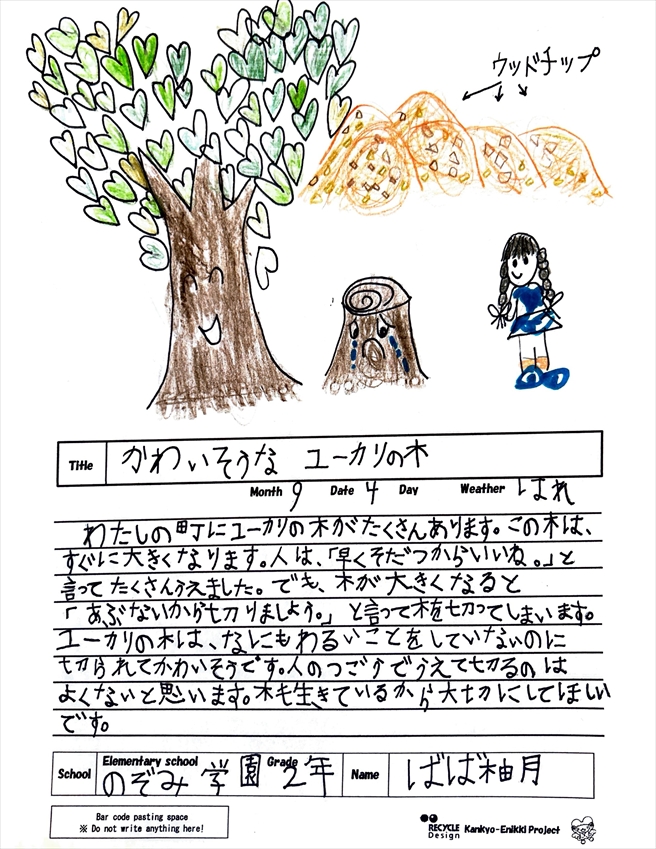 ウッドチップ
Title かわいそうな ユーカリの木
Month 9 Date 4 Day Weather はれ
わたしの町にユーカリの木がたくさんあります。この木は、
すぐに大きくなります。人は、「早くそだつからいいね。」と
言ってたくさんうえました。でも、木が大きくなると
「あぶないから切りましょう。」と言って木を切ってしまいます。
ユーカリの木は、なにもわるいことをしていないのに
切られてかわいそうです。人のつごうでうえて切るのは
よくないと思います。木も生きているから大切にしてほしい
です。
School Elementary school のぞみ学園 Grade 2年 Name ばば柚月
Bar code pasting space
※ Do not write anything here!
RECYCLE Design Kankyo-Enikki Project